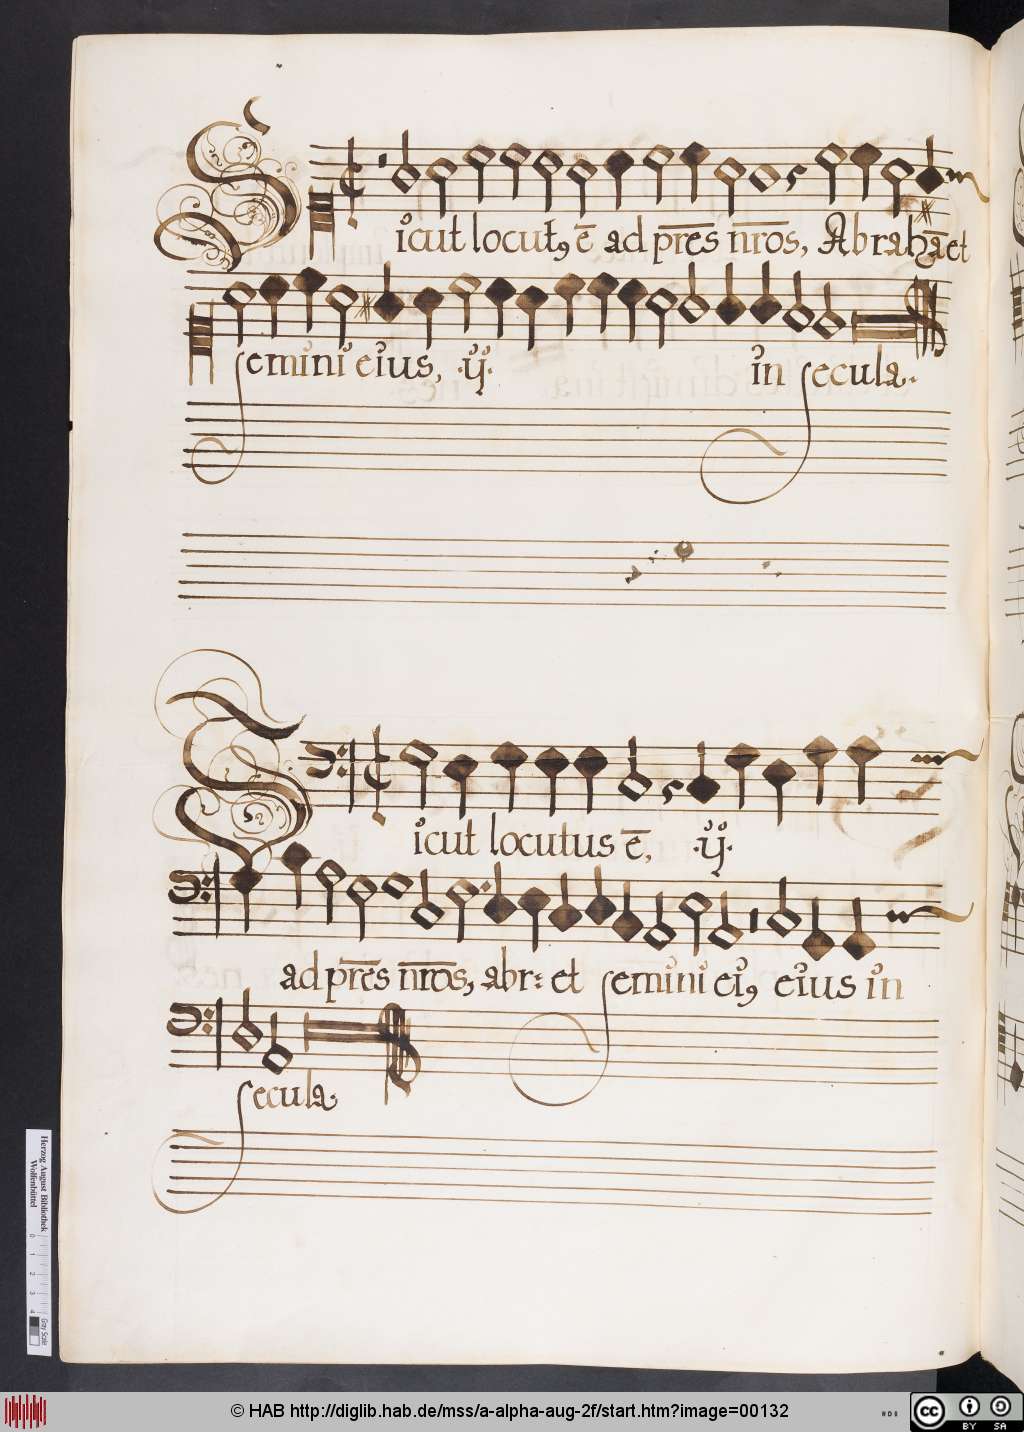 Sicut locutꝰ ē ad pr̄es nr̄os, Abrahā et
semini eius, ·ij· in secula.
Sicut locutus ē, ·ij·
ad pr̄es nr̄os, abr: et semini eiꝰ eius in
secula
Herzog August Bibliothek
Wolfenbüttel
0 1 2 3 4
Gray Scale
© HAB http://diglib.hab.de/mss/a-alpha-aug-2f/start.htm?image=00132
HAB
cc BY SA